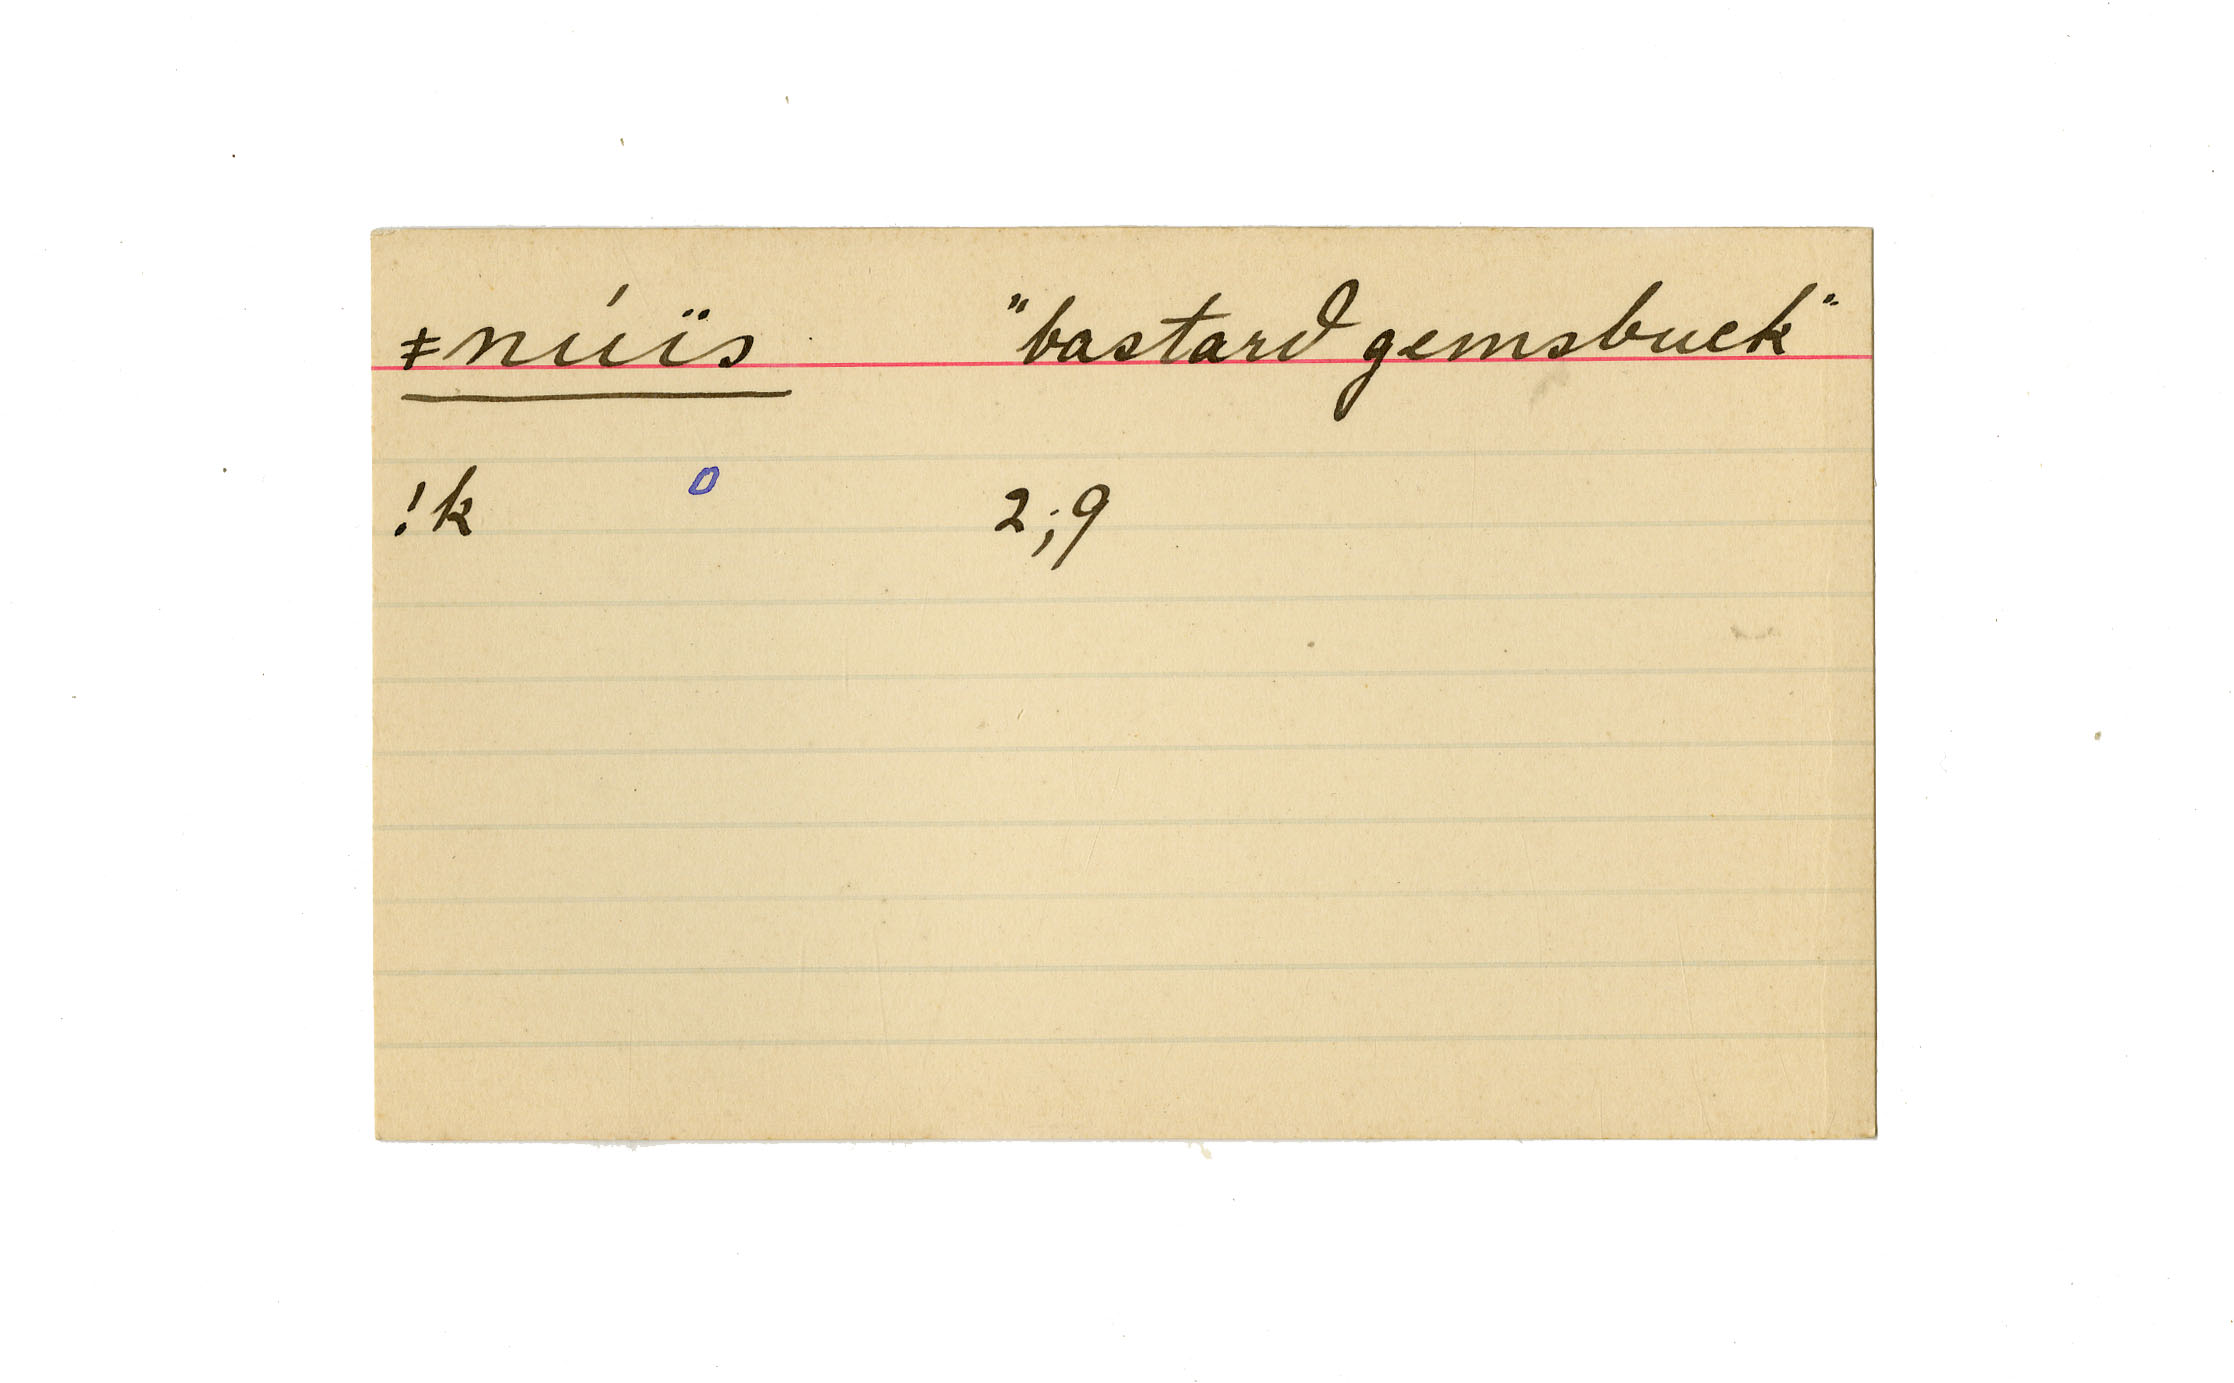 ǂnúïs "bastard gemsbuck"
!k o 2;9